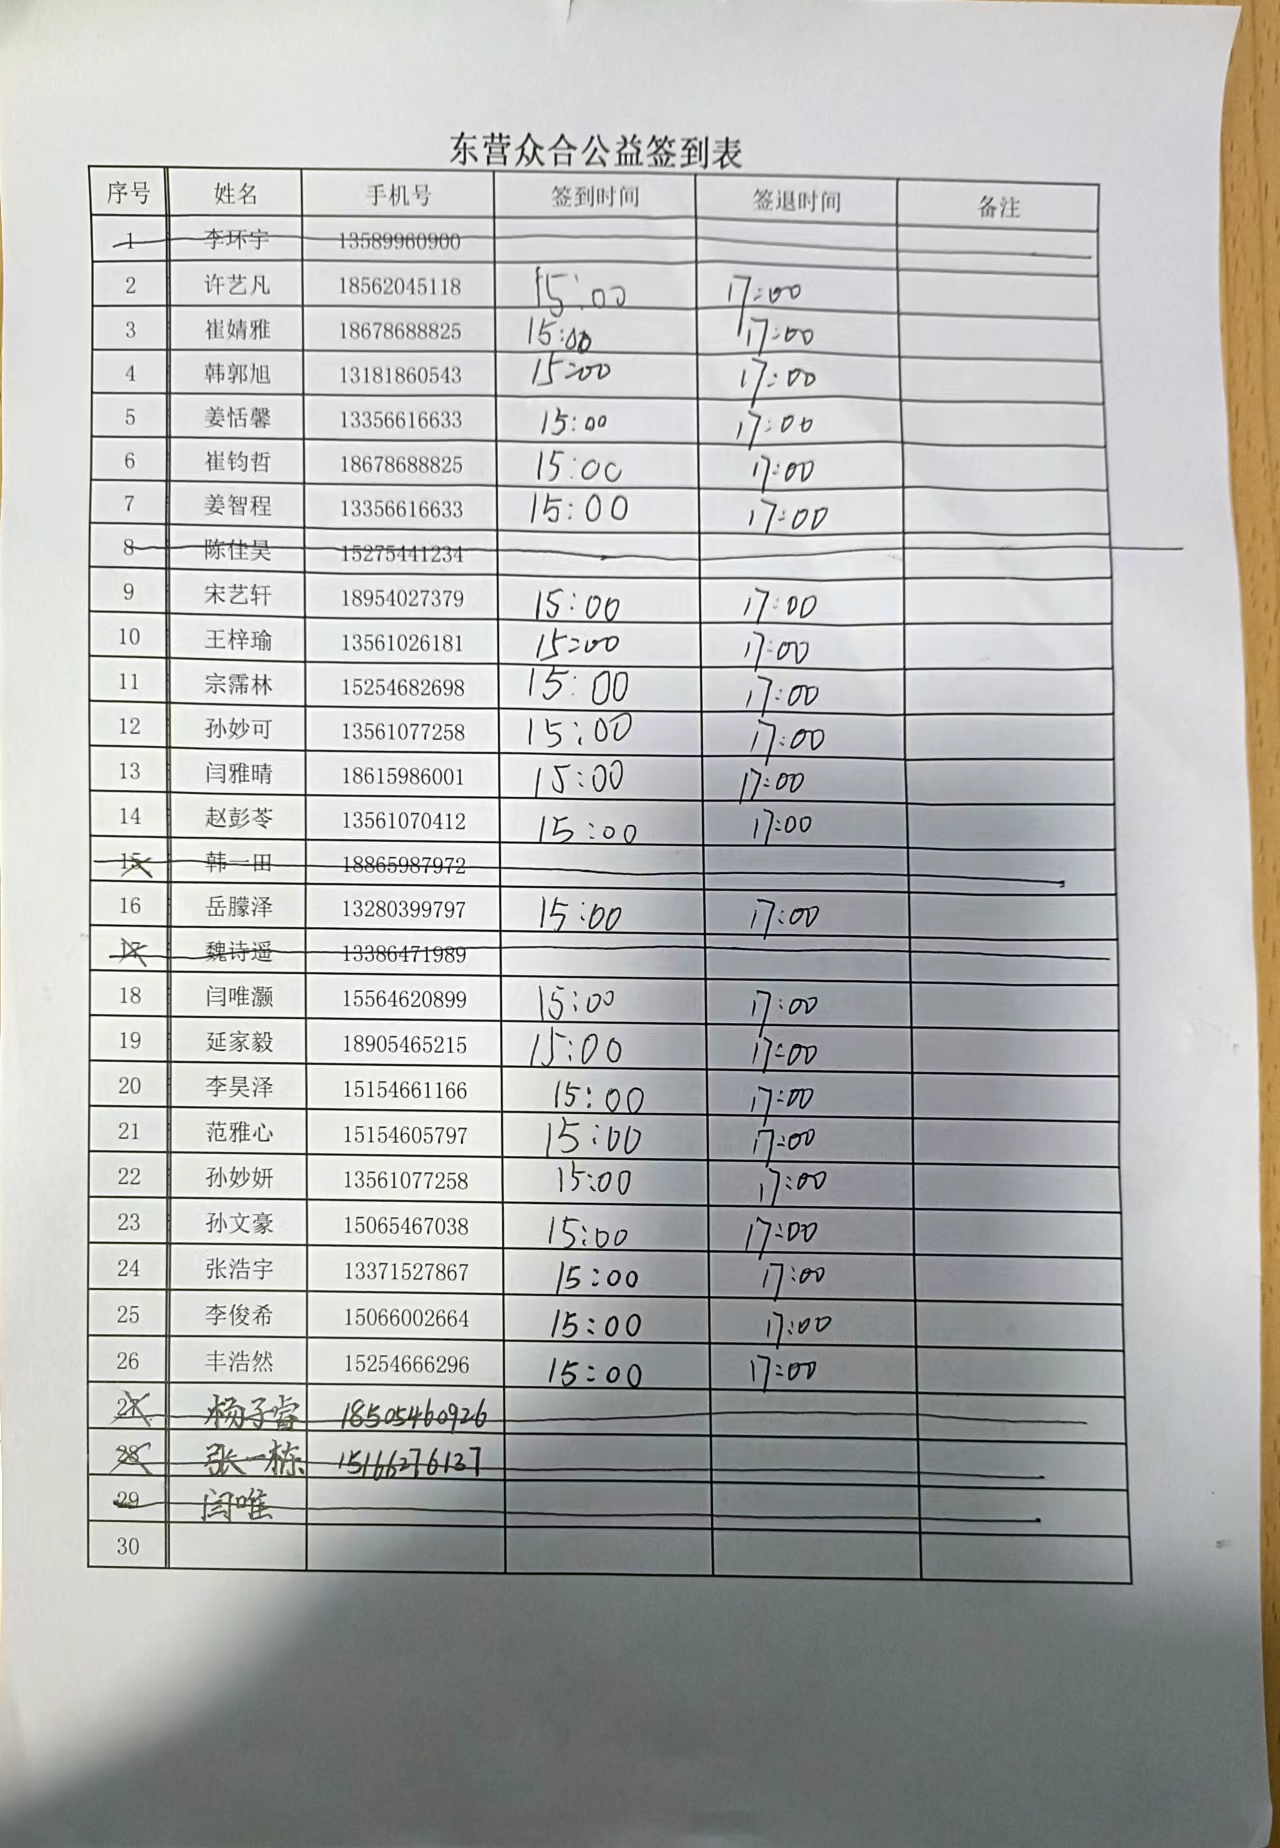 东营众合公益签到表
序号 姓名 手机号 签到时间 签退时间 备注
1 李环宇 13589960900
2 许艺凡 18562045118 15:00 17:00
3 崔婧雅 18678688825 15:00 17:00
4 韩郭旭 13181860543 15:00 17:00
5 姜恬馨 13356616633 15:00 17:00
6 崔钧哲 18678688825 15:00 17:00
7 姜智程 13356616633 15:00 17:00
8 陈佳昊 15275441234
9 宋艺轩 18954027379 15:00 17:00
10 王梓瑜 13561026181 15:00 17:00
11 宗霈林 15254682698 15:00 17:00
12 孙妙可 13561077258 15:00 17:00
13 闫雅晴 18615986001 15:00 17:00
14 赵彭苓 13561070412 15:00 17:00
15 韩一田 18865987972
16 岳朦泽 13280399797 15:00 17:00
17 魏诗遥 13386471989
18 闫唯灏 15564620899 15:00 17:00
19 延家毅 18905465215 15:00 17:00
20 李昊泽 15154661166 15:00 17:00
21 范雅心 15154605797 15:00 17:00
22 孙妙妍 13561077258 15:00 17:00
23 孙文豪 15065467038 15:00 17:00
24 张浩宇 13371527867 15:00 17:00
25 李俊希 15066002664 15:00 17:00
26 丰浩然 15254666296 15:00 17:00
27 杨子睿 18505460926
28 张一栋 15166276137
29 闫唯
30